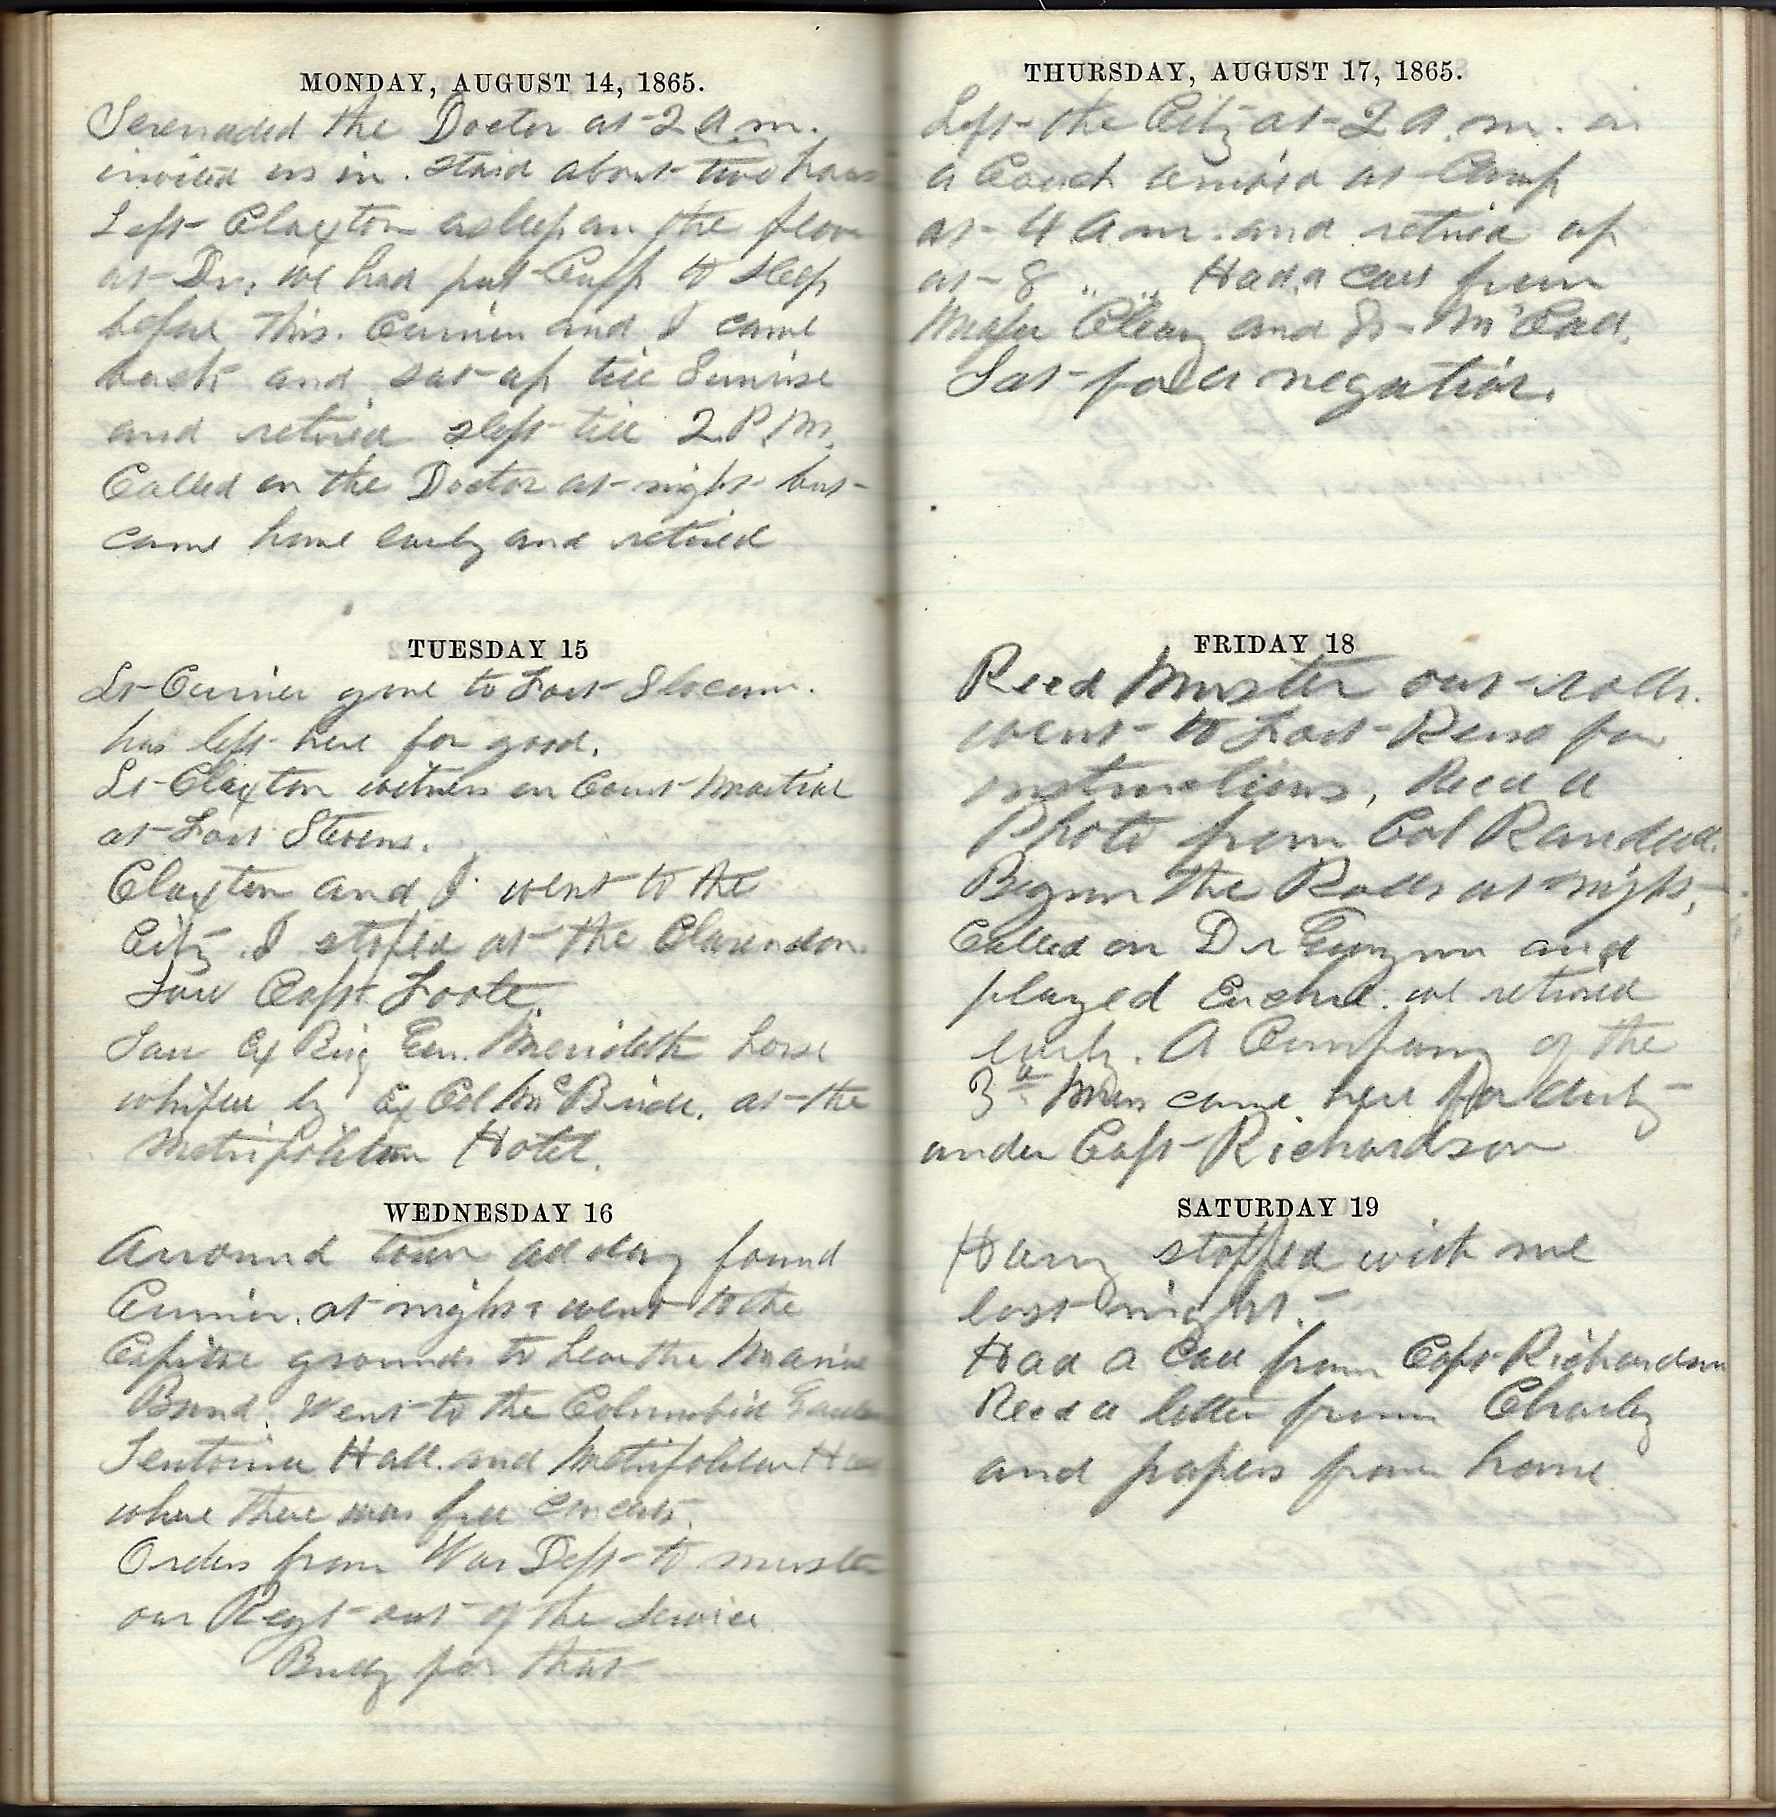 MONDAY, AUGUST 14, 1865.
Serenaded the Doctor at 2 a.m.
invited us in. staid about two hours
Left Claxton asleep on the floor
at Dr. we had put Capp to sleep
before this. Currier and I came
back and sat up till Sunrise
and retired slept till 2 P.M.
Called on the Doctor at night but
came home early and retired
TUESDAY 15
Lt Currier gone to Fort Slocum.
has left here for good.
Lt Claxton witness on Court Martial
at Fort Stevens.
Claxton and I went to the
City. I stoped at the Clarendon.
Saw Capt Foote.
Saw Ex Brig Gen. Meridith horse
whiped by Ex Col McBride. at the
Metripolitan Hotel.
WEDNESDAY 16
Arround town all day found
Currier. at night went to the
Capitol grounds to hear the Marine
Band. Went to the Columbia Garden
Hall. and Metripolitan
where there was free concerts.
Orders from War Dept to muster
our Regt out of the service
Bully for that
THURSDAY, AUGUST 17, 1865.
Left the City at 2 a.m. in
a Coach arrived at Camp
at 4 a m. and retired up
at 8 " " Had a call from
Major Cleary and
Sat for a negative.
FRIDAY 18
Recd Muster out rolls.
went to Fort Reno for
instructions, Recd a
Photo from Col Randall.
Begun the Rolls at night,
Called on Dr and
played Euchre. we retired
early. A Company of the
3d Mass came here for duty
under Capt Richardson
SATURDAY 19
Harry stopped with me
last night.
Had a Call from Capt Richardson
Recd a letter from Charley
and papers from home